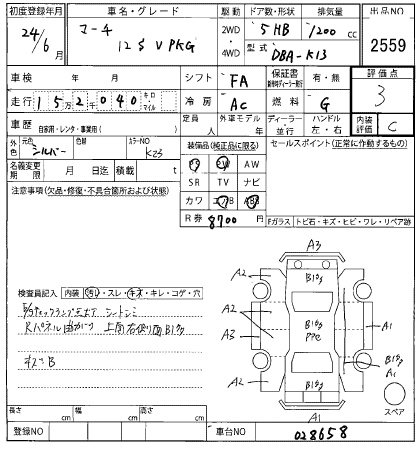 初度登録年月 車名・グレード 駆動 ドア数・形状 排気量 出品NO
24/6月 マーチ 12S V PKG 2WD・4WD 5HB 1200cc 2559
型式 DBA-K13
車検 年 月 シフト FA 保証書 有・無 評価点 3
走行 152,040 キロ マイル 冷房 AC 燃料 G
車歴 自家用・レンタ・事業用( ) 定員 人 外車モデル 年 ディーラー・並行 ハンドル 左・右 内装評価 C
外色 元色 シルバー 色替 カラーNO K23
装備品(純正品に限る) セールスポイント(正常に作動するもの)
PS PW AW
名義変更期限 月 日迄 積載 t
SR TV ナビ
注意事項(欠品・修復・不具合箇所および状態)
カワ エアB ABS
R券 8700円
Fガラス トビ石・キズ・ヒビ・ワレ・リペア跡
検査員記入 内装 汚レ・スレ・キズ・キレ・コゲ・穴
上部右後側面B1多
キズB
A3
A2 B1多
A2
A3 B1多 PPC A1
B1多
A2 B1多 A1
A1
スペア
長さ cm 幅 cm 高さ cm
登録NO 車台NO 028658